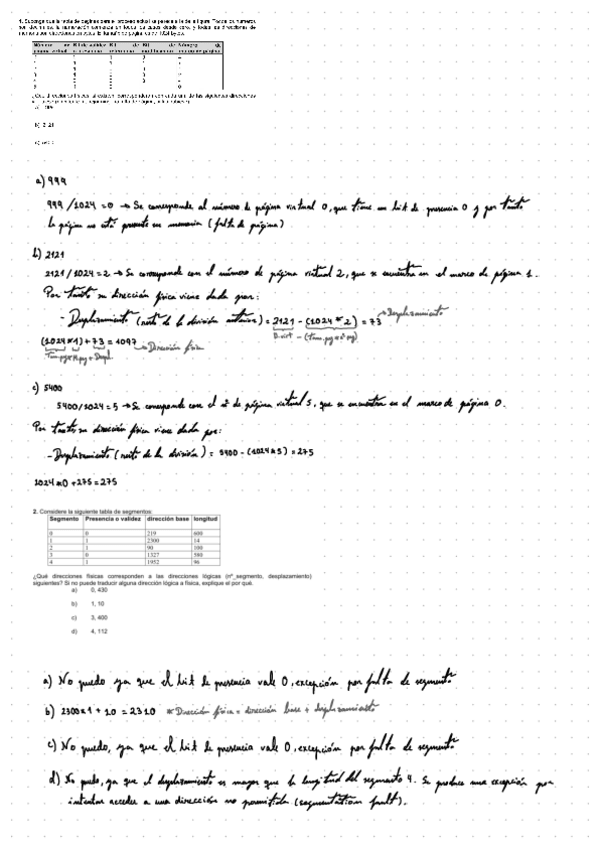 1. Suponga que la tabla de páginas para el proceso actual se parece a la de la figura. Todos los números
son decimales, la numeración comienza en todos los casos desde cero, y todas las direcciones de
memoria son direcciones en bytes. El tamaño de página es de 1024 bytes.
a)
b) 2121
c) 5400
a) 999
999 / 1024 = 0 → Se corresponde al número de página virtual 0, que tiene un bit de presencia 0 y por tanto
la página no está presente en memoria (falta de página)
b) 2121
2121 / 1024 = 2 → Se corresponde con el número de página virtual 2, que se encuentra en el marco de página 1.
Por tanto su dirección física viene dada por:
- Desplazamiento (resto de la división anterior) = 2121 - (1024 * 2) = 73 → Desplazamiento
D.virt - (Tam.pg * nº pg)
(1024 * 1) + 73 = 1097 → Dirección física
Tam.pg * N.pg + Despl.
c) 5400
5400/1024 = 5 → Se corresponde con el nº de página virtual 5, que se encuentra en el marco de página 0.
Por tanto su dirección física viene dada por:
- Desplazamiento (resto de la división) = 5400 - (1024 * 5) = 275
1024 * 0 + 275 = 275
2. Considere la siguiente tabla de segmentos:
Segmento Presencia o validez dirección base longitud
0 0 219 600
1 1 2300 14
2 1 90 100
3 0 1327 580
4 1 1952 96
¿Qué direcciones físicas corresponden a las direcciones lógicas (nº_segmento, desplazamiento)
siguientes? Si no puede traducir alguna dirección lógica a física, explique el por qué.
a) 0, 430
b) 1, 10
c) 3, 400
d) 4, 112
a) No puedo ya que el bit de presencia vale 0, excepción por falta de segmento
b) 2300 * 1 + 10 = 2310 * Dirección física = dirección base + desplazamiento
c) No puedo, ya que el bit de presencia vale 0, excepción por falta de segmento
d) No puedo, ya que el desplazamiento es mayor que la longitud del segmento 4. Se produce una excepción por
intentar acceder a una dirección no permitida (segmentation fault).